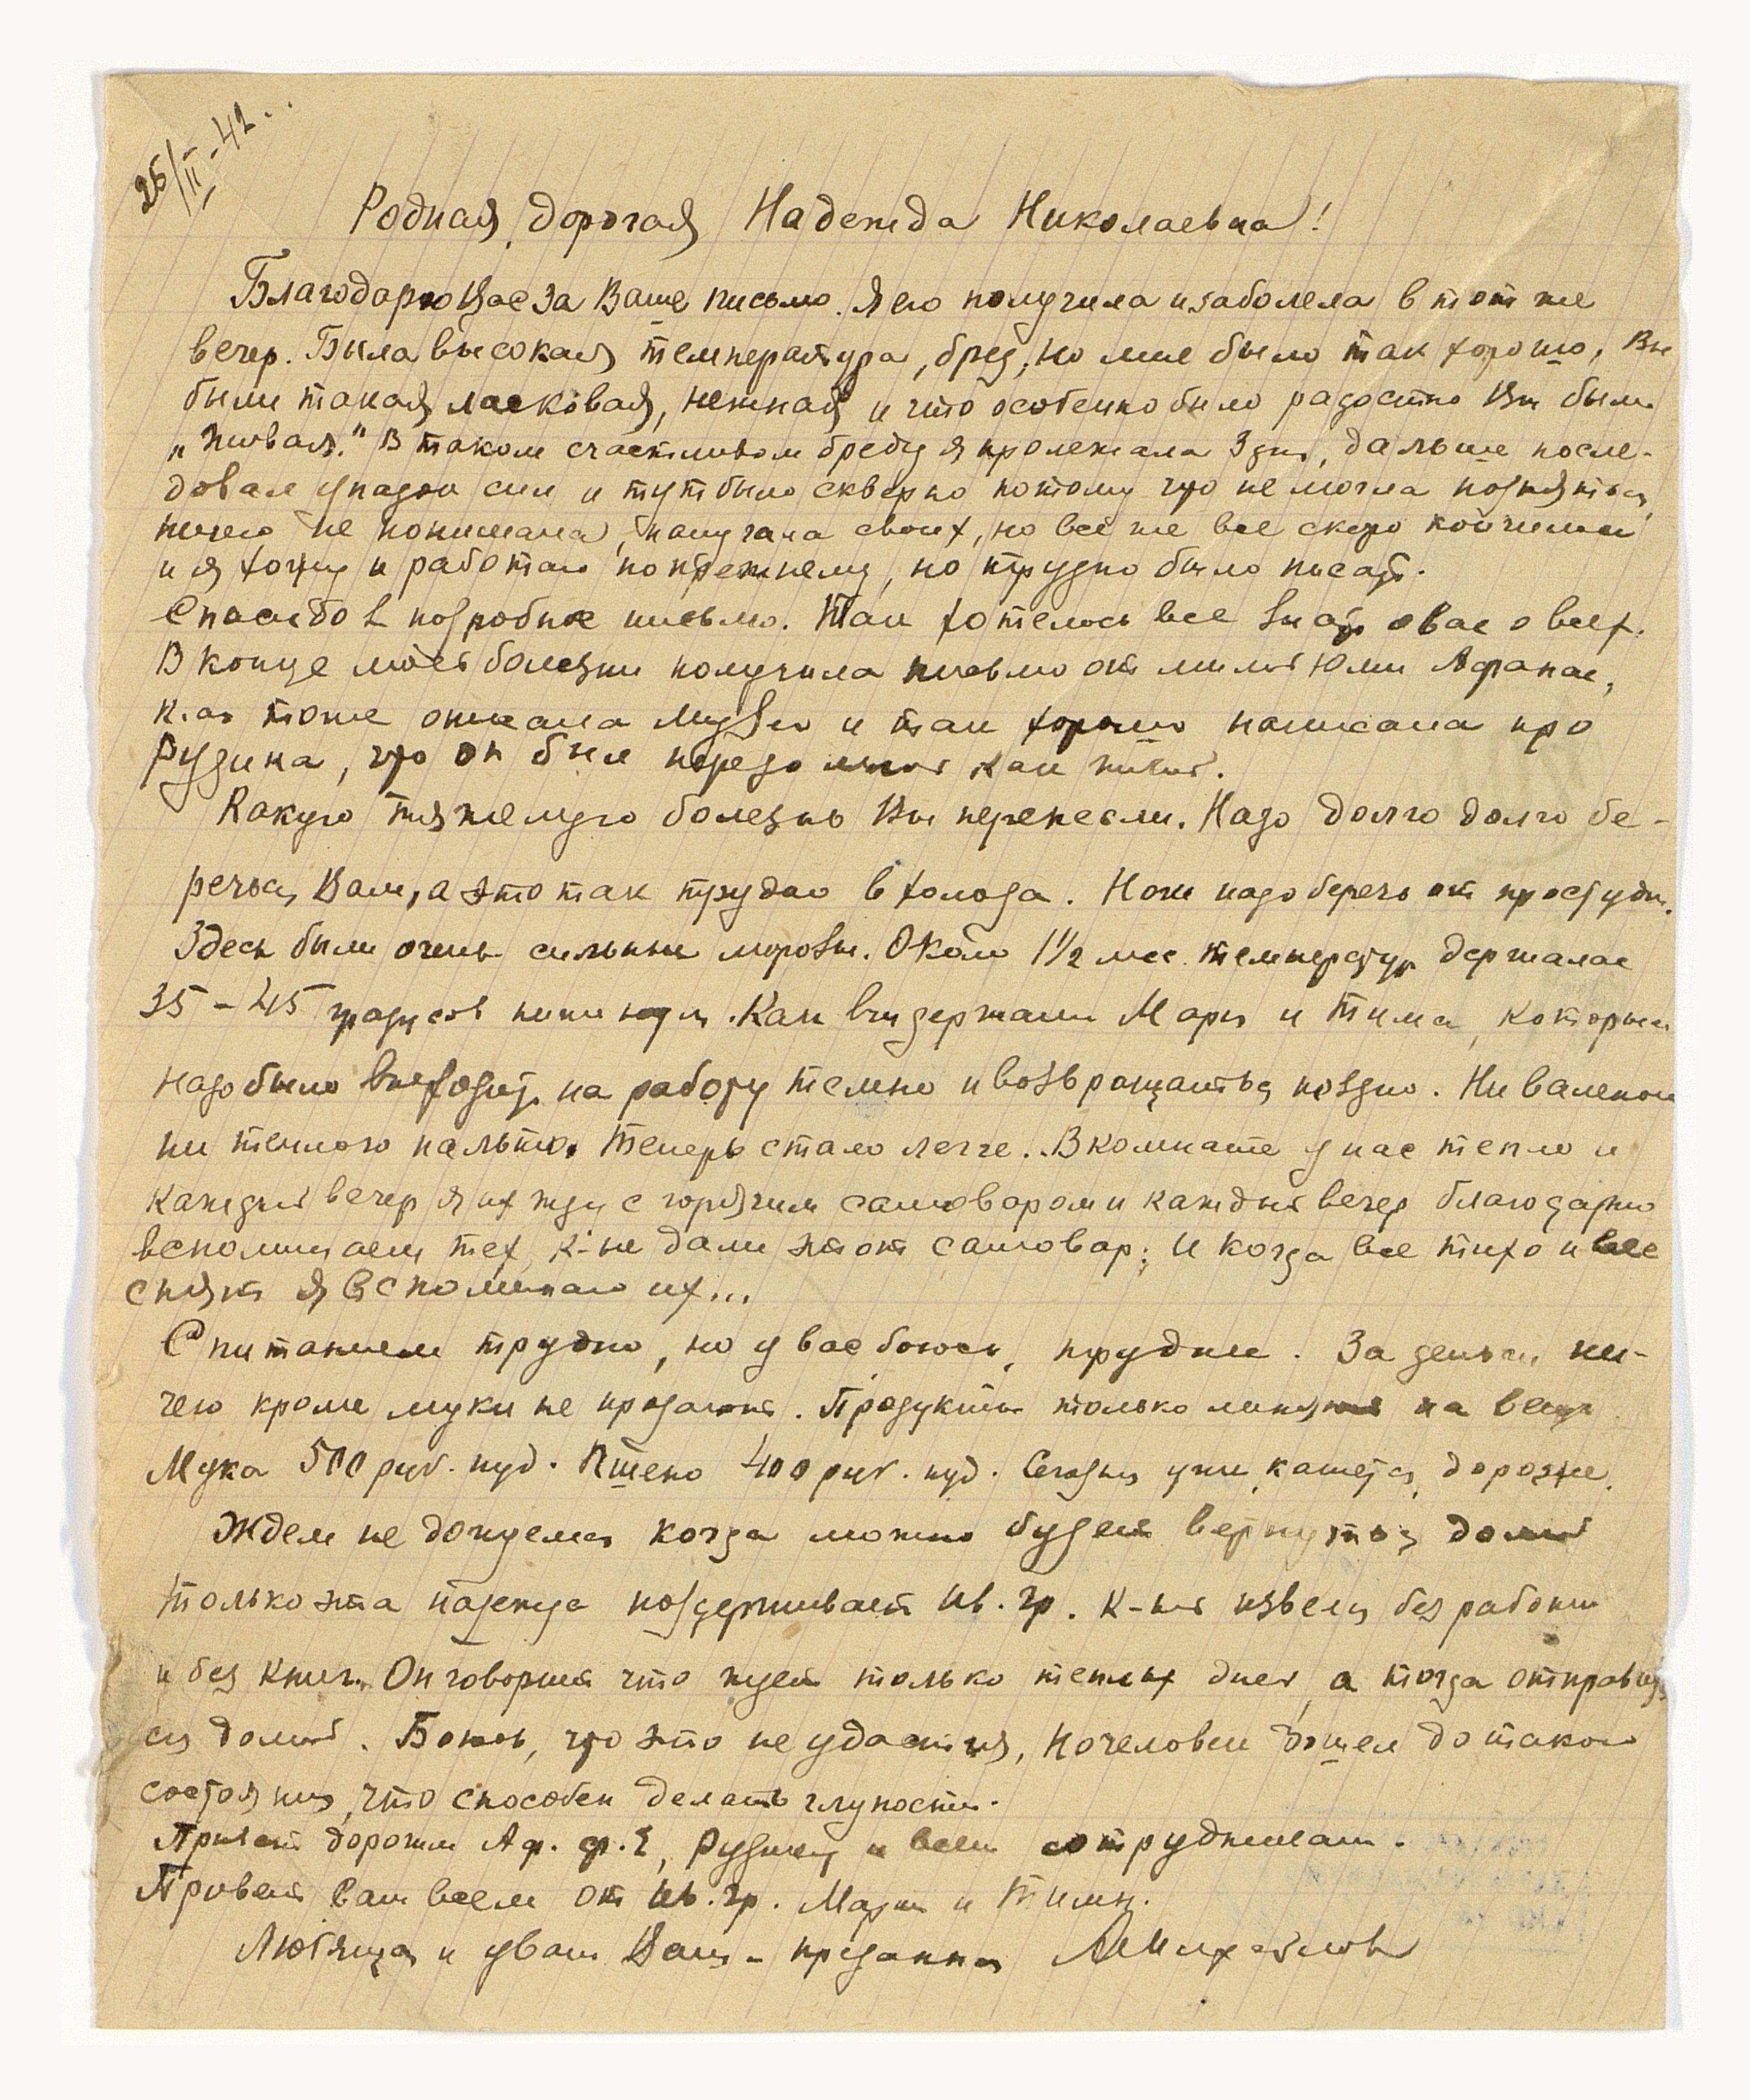 26/II-42.
Родная, дорогая Надежда Николаевна!
Благодарю Вас за Ваше письмо. Я его получила и заболела в тот же
вечер. Была высокая температура, бред, но мне было так хорошо, Вы
были такая ласковая, нежная и что особенно было радостно Вы были
„живая." В таком счастливом бреду я пролежала 3 дня, дальше после-
довал упадок сил и тут было скверно потому что не могла подняться,
ничего не понимала, напугала своих, но всё же все скоро кончилось
и я хожу и работаю по прежнему, но трудно было писать.
Спасибо за подробное письмо. Так хотелось все знать о вас о всех.
В конце моей болезни получила письмо от милой Юлии Афанас,
к-ая тоже описала Музей и так хорошо написала про
Рудина, что он был передо мной как живой.
Какую тяжелую болезнь Вы перенесли. Надо долго долго бе-
речься Вам, а это так трудно в холода. Ноги надо беречь от простуды.
Здесь были очень сильные морозы. Около 1½ мес. температур держалас
35-45 градусов ниже нуля. Как выдержали Мара и Тима, которым
надо было выходить на работу темно и возвращаться поздно. Ни валенок
ни теплого пальто. Теперь стало легче.. В комнате у нас тепло и
каждый вечер я их жду с горячим самоваром и каждый вечер благодарно
вспоминаем тех, к-ые дали этот самовар; и когда все тихо и все
спят я вспоминаю их...
С питанием трудно, но у вас боюсь, труднее. За деньги ни-
чего кроме муки не продают. Продукты только меняют на вещи
Мука 500 руб. пуд. Пшено 400 руб. пуд. Сегодня уже, кажется, дороже.
Ждем не дождемся когда можно будет вернуться домой
только эта надежда поддерживает Ив. Гр. к-ый извелся без работы
и без книг. Он говорит что ждет только теплых дней, а тогда отправит
ся домой. Боюсь, что это не удастся, но человек дошел до такого
состояния, что способен делать глупости.
Привет дорогим Аф. Ф. Рудину и всем сотрудникам.
Привет Вам всем от Ив. Гр. Мары и Тимы.
Любящая и уваж Вашу - преданная АМихайлова